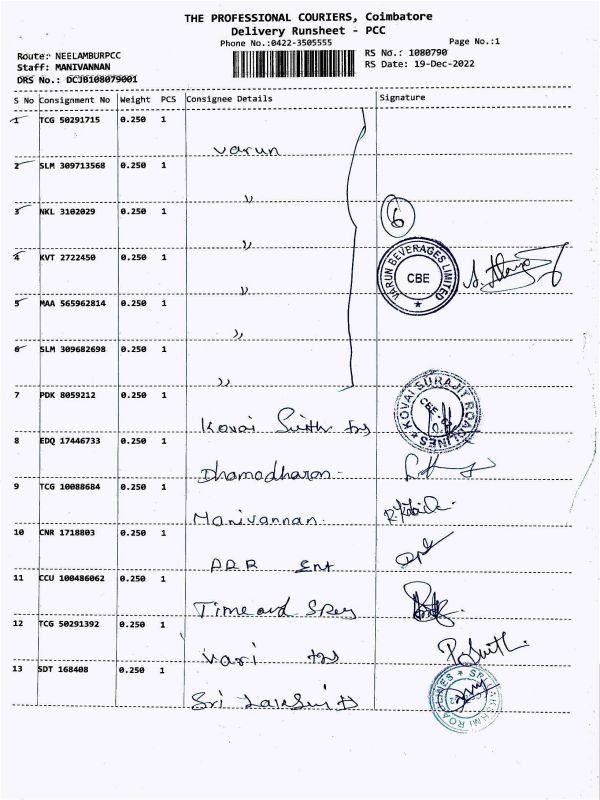 THE PROFESSIONAL COURIERS, Coimbatore
Delivery Runsheet - PCC
Phone No.:0422-3505555
Page No.:1
Route: NEELAMBURPCC
RS No.: 1080790
Staff: MANIVANNAN
RS Date: 19-Dec-2022
DRS No.: DCJB108079001
S No Consignment No Weight PCS Consignee Details Signature
1 TCG 50291715 0.250 1
varun
2 SLM 309713568 0.250 1
〃
3 NKL 3102029 0.250 1
6
〃
4 KVT 2722450 0.250 1
VARUN BEVERAGES LIMITED
CBE
〃
5 MAA 565962814 0.250 1
〃
6 SLM 309682698 0.250 1
〃
7 PDK 8059212 0.250 1
KOVAI SURAJIT ROADLINES
Kovai
8 EDQ 17446733 0.250 1
Dhamodharan
9 TCG 10088684 0.250 1
Manivannan
10 CNR 1718803 0.250 1
Ent
11 CCU 100486062 0.250 1
Time and
12 TCG 50291392 0.250 1
Vari
13 SDT 168408 0.250 1
Sri